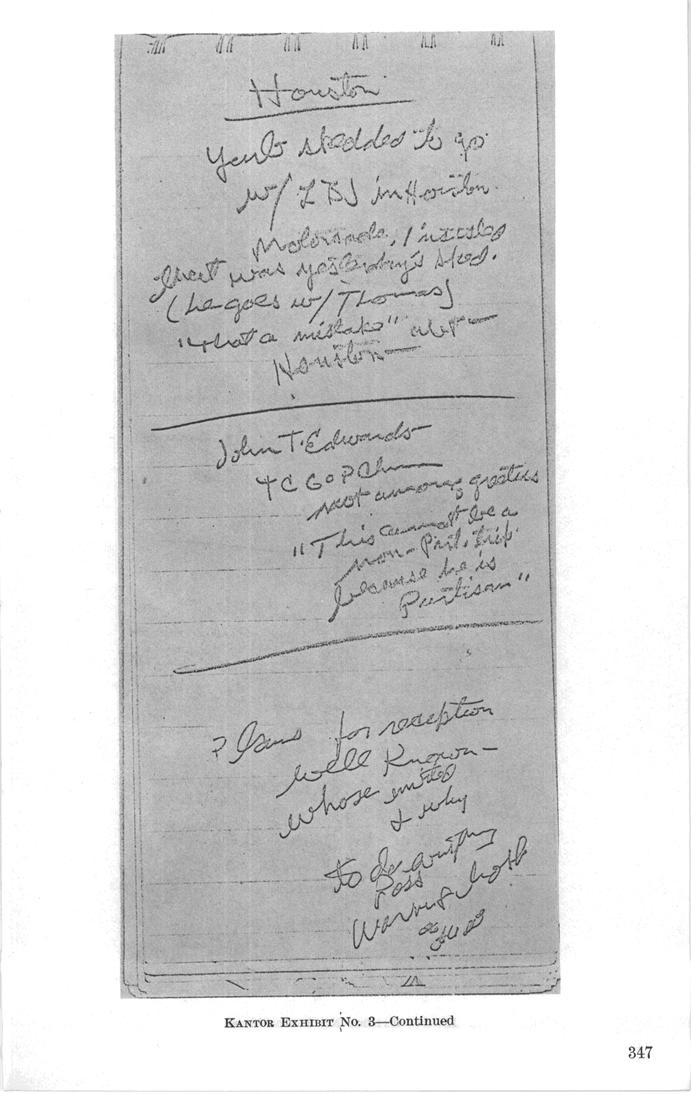 Houston
Yarb skedded to go
w/ LBJ in Houston
Motorcade, I insisted
that was yesterday's sked.
(he goes w/ Thomas)
"What a mistake"
Houston—
John T. Edwards—
TC GOP Chm
not among greeters
"This cannot be a
non-Part. trip
because he is
Partisan"
Plans for reception
well known—
whose invited
& why
to do anything
Poss
KANTOR EXHIBIT No. 3—Continued
347